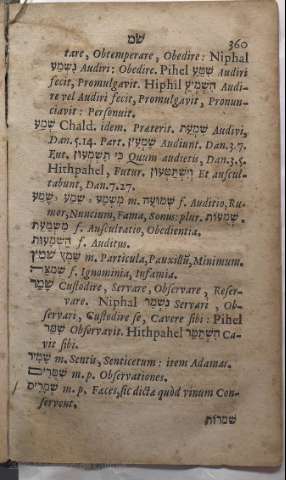 שמ 360
tare, Obtemperare, Obedire: Niphal
נִשְׁמַע Audiri: Obedire. Pihel שִׁמַּע Audiri
fecit, Promulgavit. Hiphil הִשְׁמִיעַ Audi-
re vel Audiri fecit, Promulgavit, Pronun-
ciavit: Personuit.
שְׁמַע Chald. idem. Præterit. שִׁמְעֵת Audivi,
Dan. 5.14. Part. שָׁמְעִין Audiunt. Dan. 3.7.
Fut. תִשְׁמְעוּן כִּי Quum audietis, Dan. 3.5.
Hithpahel, Futur. וְיִשְׁתַּמְּעוּן Et auscul-
tabunt, Dan. 7.27.
שֵׁמַע, שֶׁמַע, מִשְׁמָע m. שְׁמוּעָה f. Auditio, Ru-
mor, Nuncium, Fama, Sonus: plur. שְׁמֻעוֹת.
מִשְׁמַעַת f. Auscultatio, Obedientia.
הַשְׁמָעוּת f. Auditus.
שֶׁמֶץ m. Particula, Pauxillũ, Minimum.
שִׁמְצָה f. Ignominia, Infamia.
שָׁמַר Custodire, Servare, Observare, Reser-
vare. Niphal נִשְׁמַר Servari, Ob-
servari, Custodire se, Cavere sibi: Pihel
שִׁמֵּר Observavit. Hithpahel הִשְׁתַּמֵּר Ca-
vit sibi.
שָׁמִיר m. Sentis, Senticetum: item Adamas.
שִׁמֻּרִים m. p. Observationes.
שְׁמָרִים m. p. Fæces, sic dictæ quòd vinum Con-
servent.
שמרות